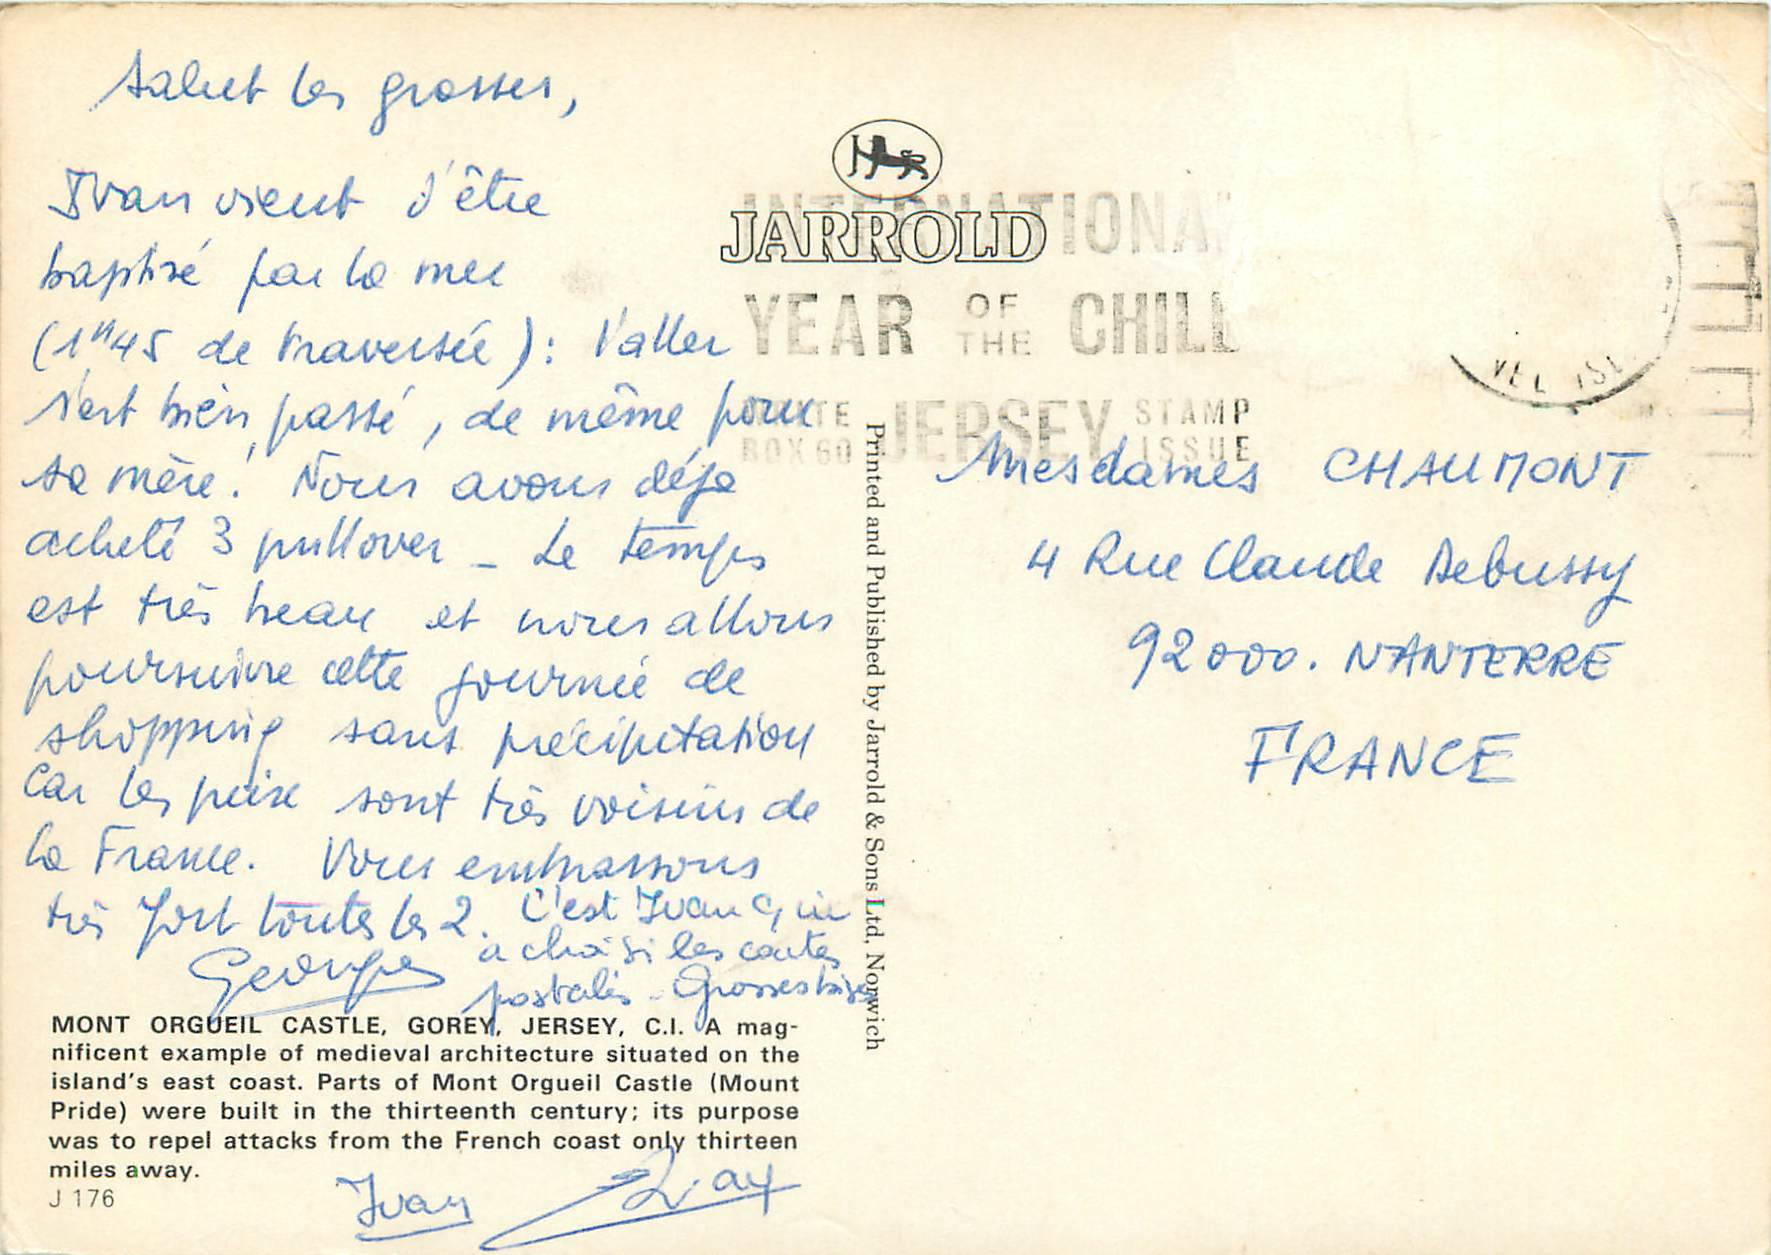 Salut les grosses,
Ivan vient d'être
baptisé par la mer
(1h45 de traversée) : l'aller
s'est bien passé, de même pour
sa mère ! Nous avons déjà
acheté 3 pullover _ Le temps
est très beau et nous allons
poursuivre cette journée de
shopping sans précipitation
car les prix sont très voisins de
la France. Vous embrassons
très fort toutes les 2.
Georges
C'est Ivan qui
a choisi les cartes
postales - Grosses bises
MONT ORGUEIL CASTLE, GOREY, JERSEY, C.I. A mag-
nificent example of medieval architecture situated on the
island's east coast. Parts of Mont Orgueil Castle (Mount
Pride) were built in the thirteenth century; its purpose
was to repel attacks from the French coast only thirteen
miles away.
J 176
Ivan
JARROLD
Printed and Published by Jarrold & Sons Ltd, Norwich
INTERNATIONA
YEAR OF THE CHIL
BOX 60 JERSEY STAMP ISSUE
Mesdames CHAUMONT
4 Rue Claude Debussy
92000. NANTERRE
FRANCE